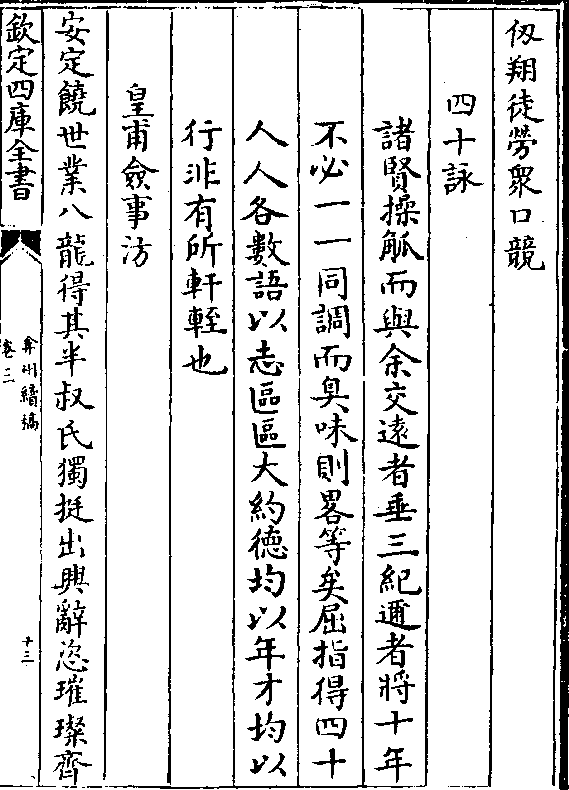 仭翔徒勞衆口競
四十詠
諸賢操觚而與余交遠者垂三紀邇者將十年
不必一一同調而臭味則畧等矣屈指得四十
人人各數語以志區區大約德均以年才均以
行非有所軒輊也
皇甫僉事汸
安定饒世業八龍得其半叔氏獨挺出興辭恣璀璨齊
欽定四庫全書
弇州續稿
卷三
十三